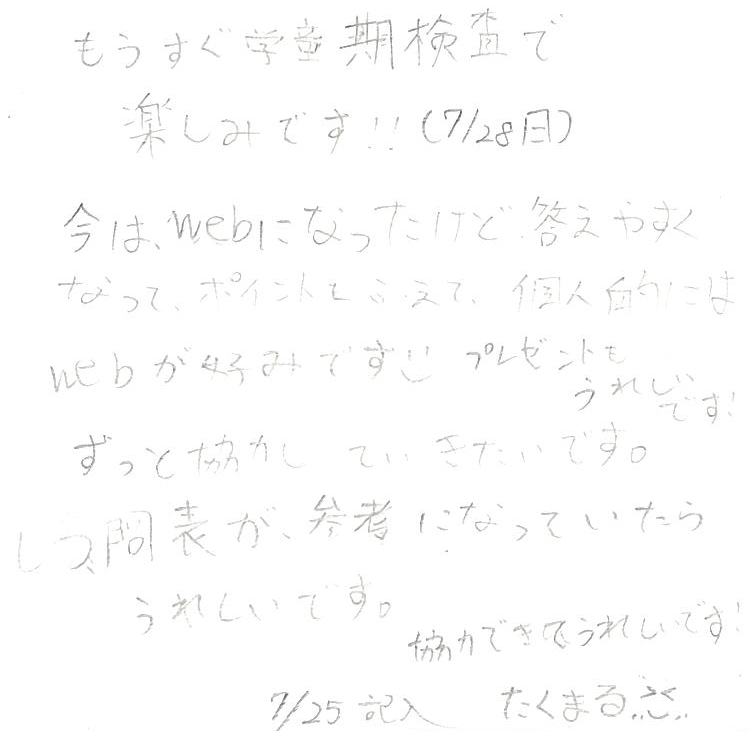 もうすぐ学童期検査で
楽しみです!!(7/28日)
今は、webになったけど、答えやすく
なって、ポイントもふえて、個人的には
webが好みです プレゼントも
うれしい
です!
ずっと協力していきたいです。
しつ問表が、参考になっていたら
うれしいです。
協力できてうれしいです!
7/25 記入 たくまる